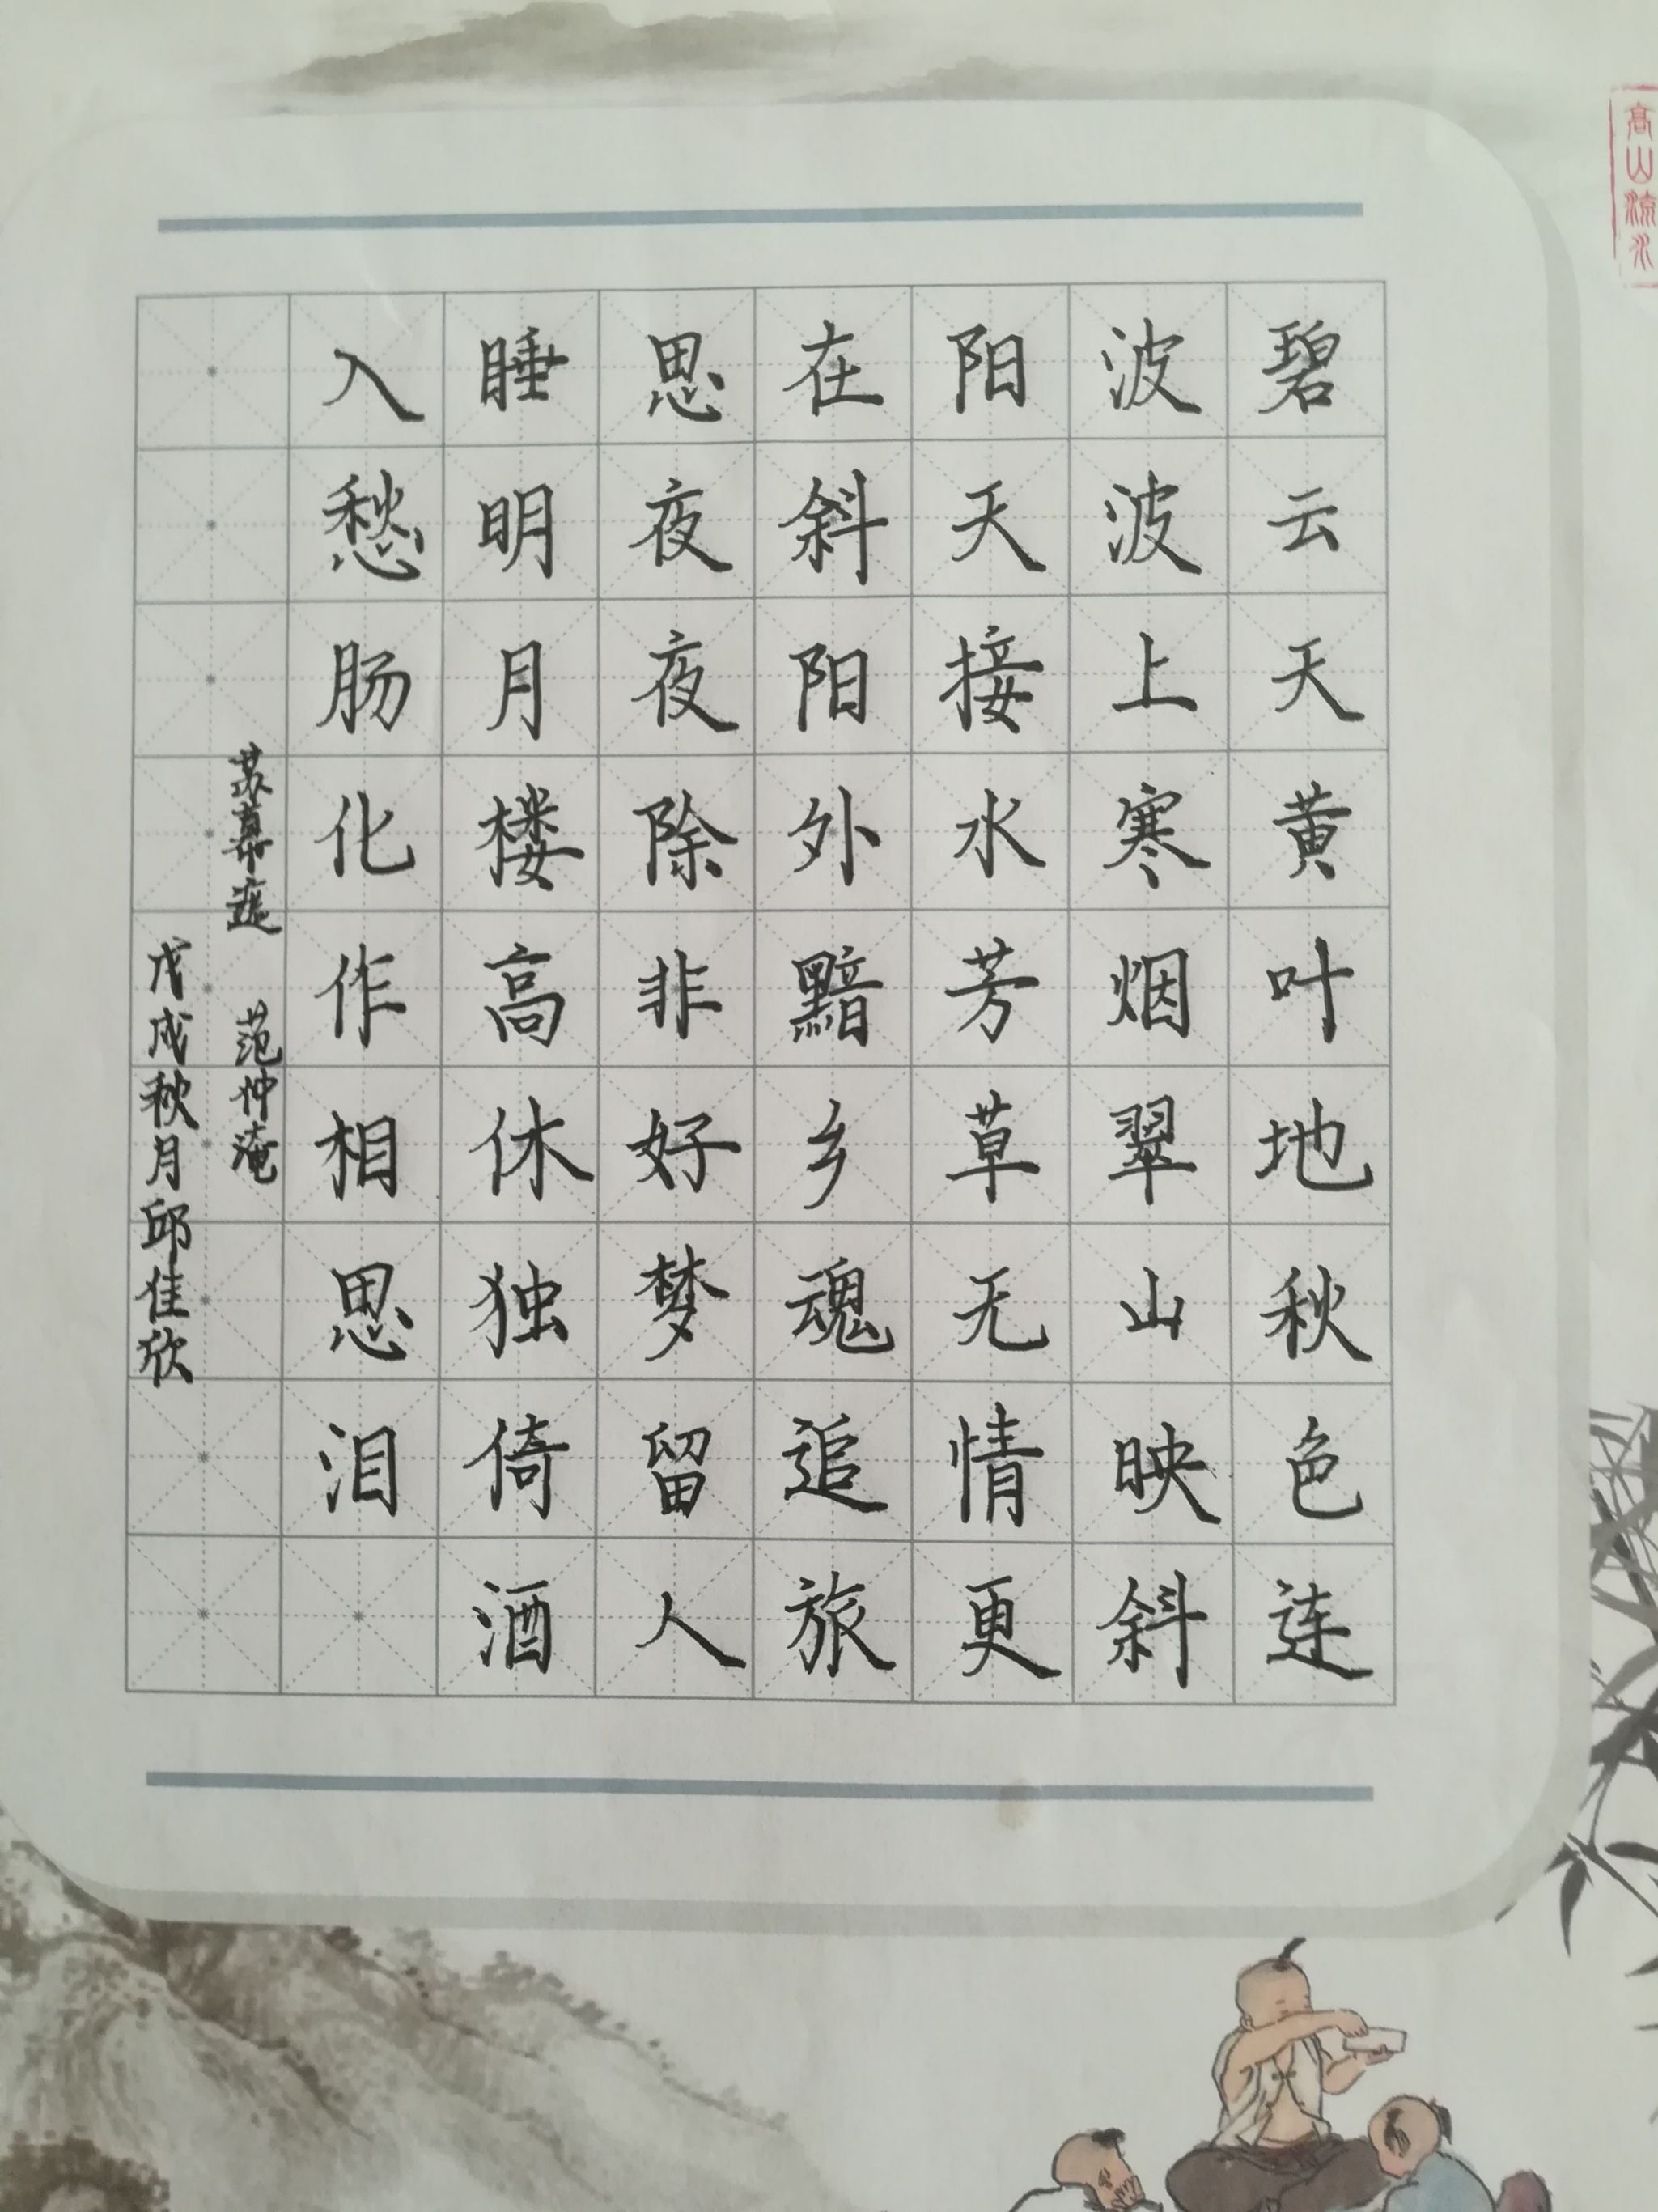 碧云天黄叶地秋色连
波波上寒烟翠山映斜
阳天接水芳草无情更
在斜阳外黯乡魂追旅
思夜夜除非好梦留人
睡明月楼高休独倚酒
入愁肠化作相思泪
苏幕遮 范仲淹
戊戌秋月邱佳欣
高山流水